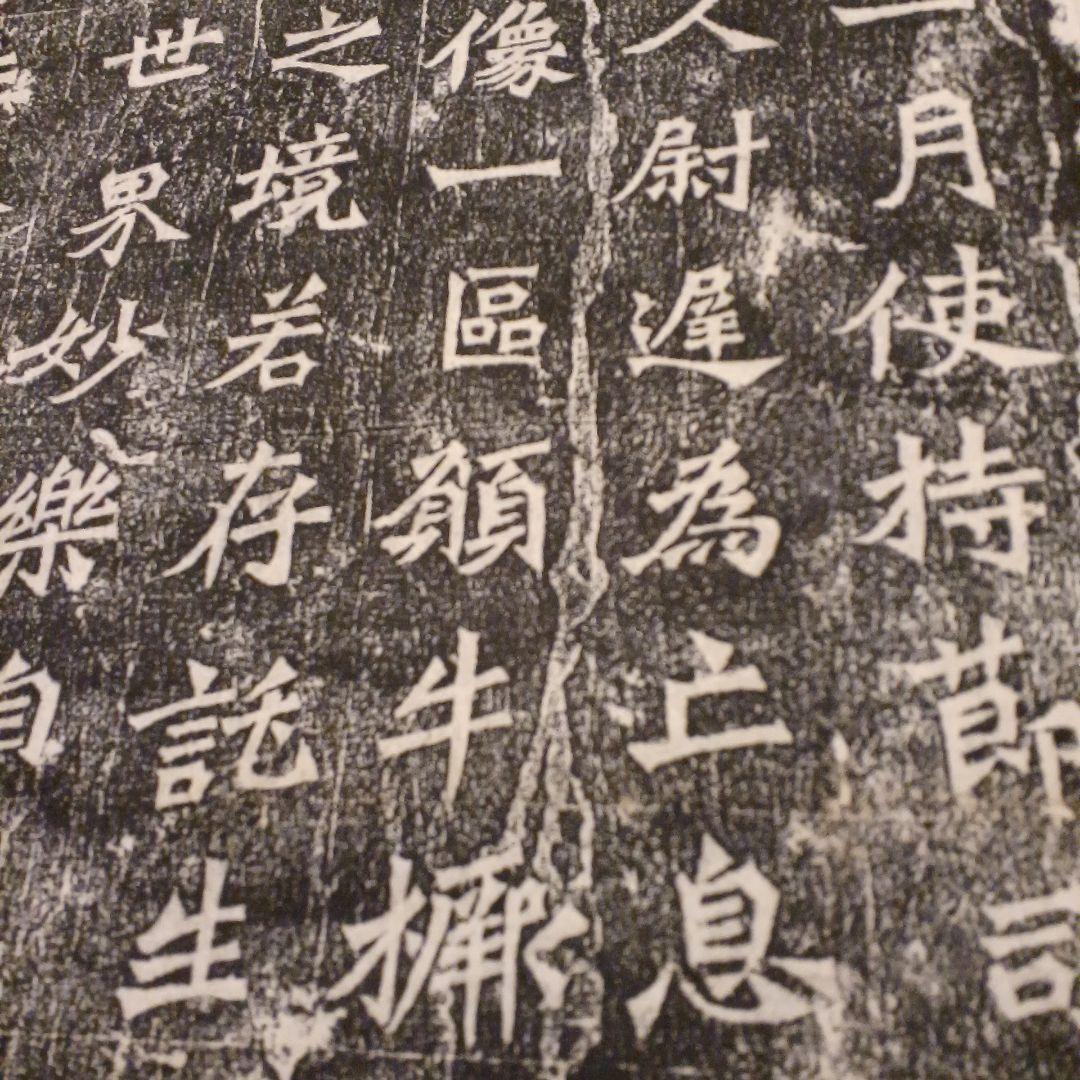 一月使持節司
人尉遲為亡息
像一區願牛橛
之境若存託生
世界妙樂自